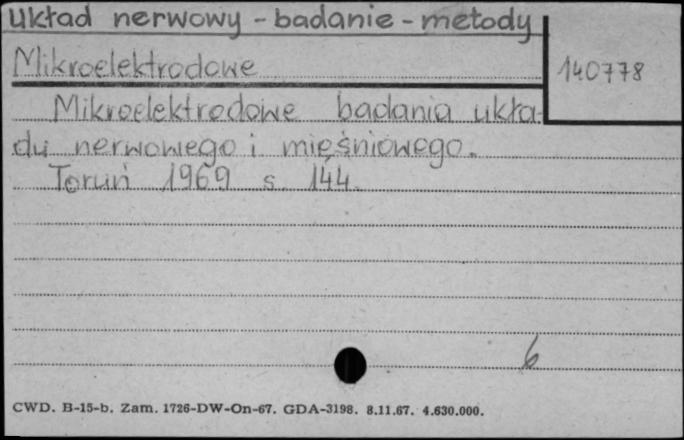 układ nerwowy - badanie - metody
Mikroelektrodowe
140778
Mikroelektrodowe badania ukła-
du nerwowego i mięśniowego.
Toruń 1969 s. 144.
6
CWD. B-15-b. Zam. 1726-DW-On-67. GDA-3198. 8.11.67. 4.630.000.